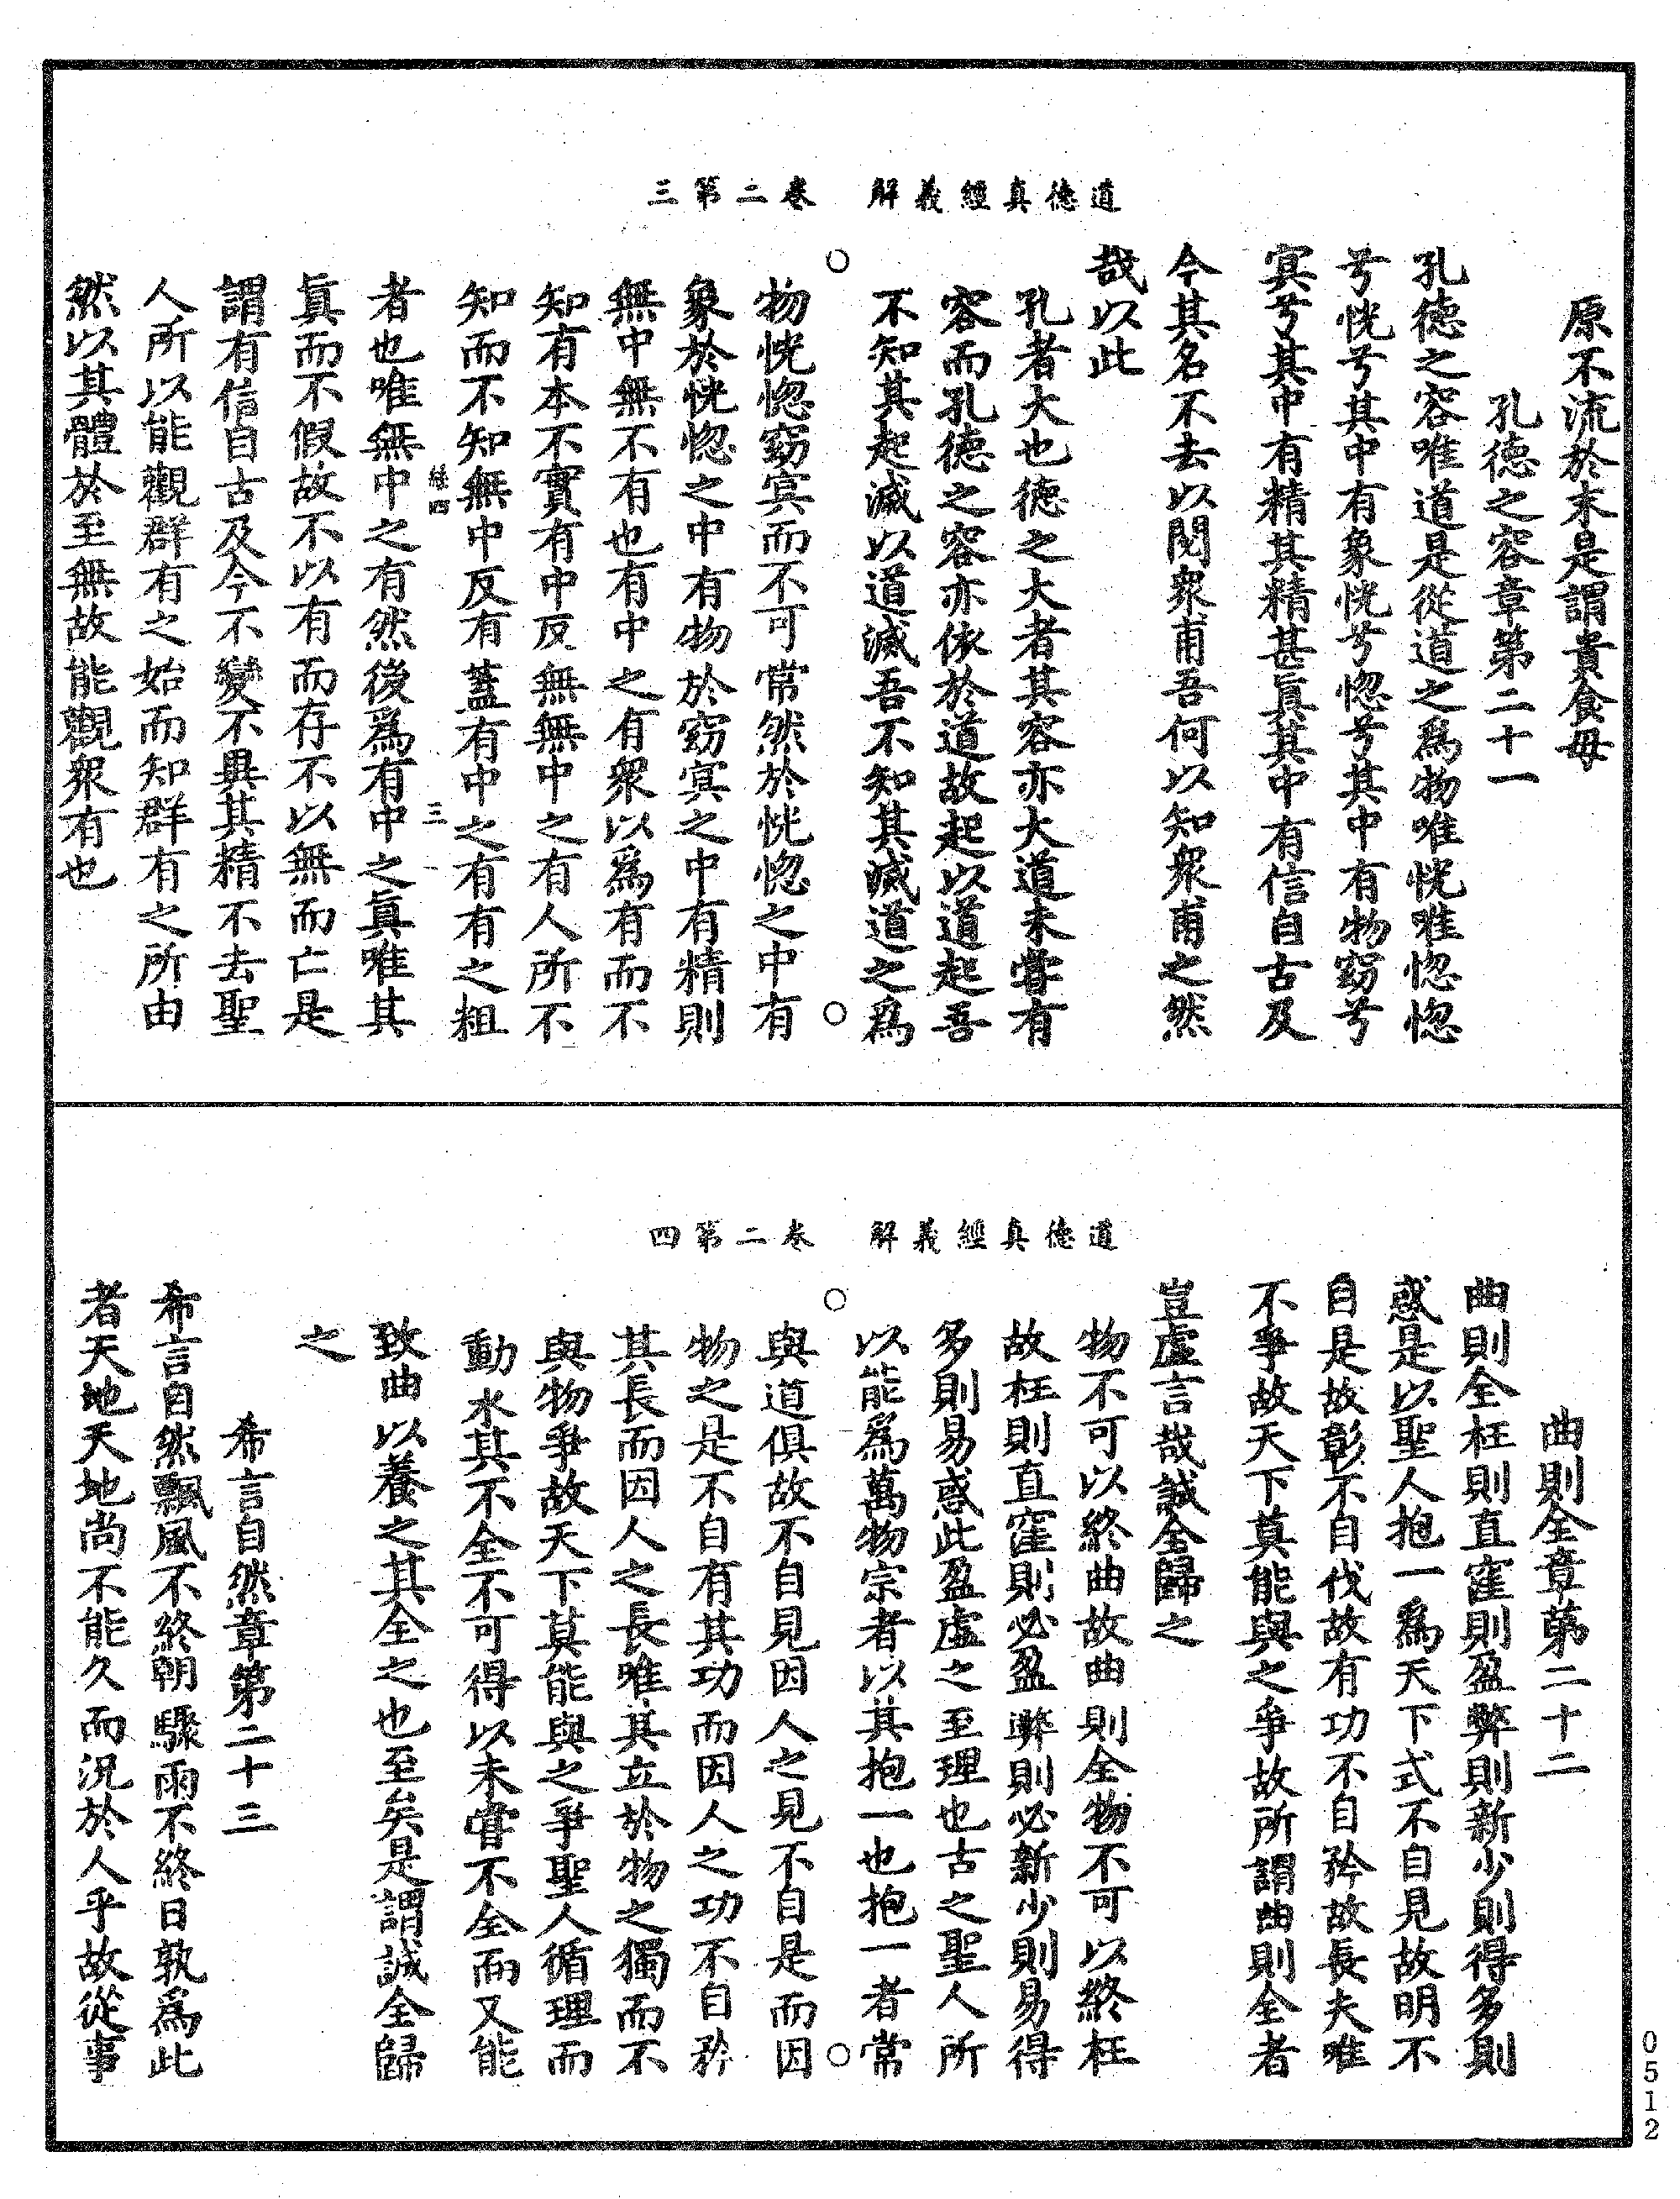 道德真經義解　卷二第三
原不流於末是謂貴食母
孔德之容章第二十一
孔德之容唯道是從道之爲物唯恍唯惚惚
兮恍兮其中有象恍兮惚兮其中有物窈兮
冥兮其中有精其精甚眞其中有信自古及
今其名不去以閱衆甫吾何以知衆甫之然
哉以此
孔者大也德之大者其容亦大道未嘗有
容而孔德之容亦依於道故起以道起吾
不知其起滅以道滅吾不知其滅道之爲
○　○
物恍惚窈冥而不可常然於恍惚之中有
象於恍惚之中有物於窈冥之中有精則
無中無不有也有中之有衆以爲有而不
知有本不實有中反無無中之有人所不
知而不知無中反有蓋有中之有有之粗
絲四　三
者也唯無中之有然後爲有中之眞唯其
眞而不假故不以有而存不以無而亡是
謂有信自古及今不變不異其精不去聖
人所以能觀群有之始而知群有之所由
然以其體於至無故能觀衆有也
道德真經義解　卷二第四
曲則全章第二十二
曲則全枉則直窪則盈弊則新少則得多則
惑是以聖人抱一爲天下式不自見故明不
自是故彰不自伐故有功不自矜故長夫唯
不爭故天下莫能與之爭故所謂曲則全者
豈虛言哉誠全歸之
物不可以終曲故曲則全物不可以終枉
故枉則直窪則必盈弊則必新少則易得
多則易惑此盈虛之至理也古之聖人所
以能爲萬物宗者以其抱一也抱一者常
○　○
與道俱故不自見因人之見不自是而因
物之是不自有其功而因人之功不自矜
其長而因人之長唯其立於物之獨而不
與物爭故天下莫能與之爭聖人循理而
動水其不全不可得以未嘗不全而又能
致曲以養之其全之也至矣是謂誠全歸
之
希言自然章第二十三
希言自然飄風不終朝驟雨不終日孰爲此
者天地天地尚不能久而況於人乎故從事
0512